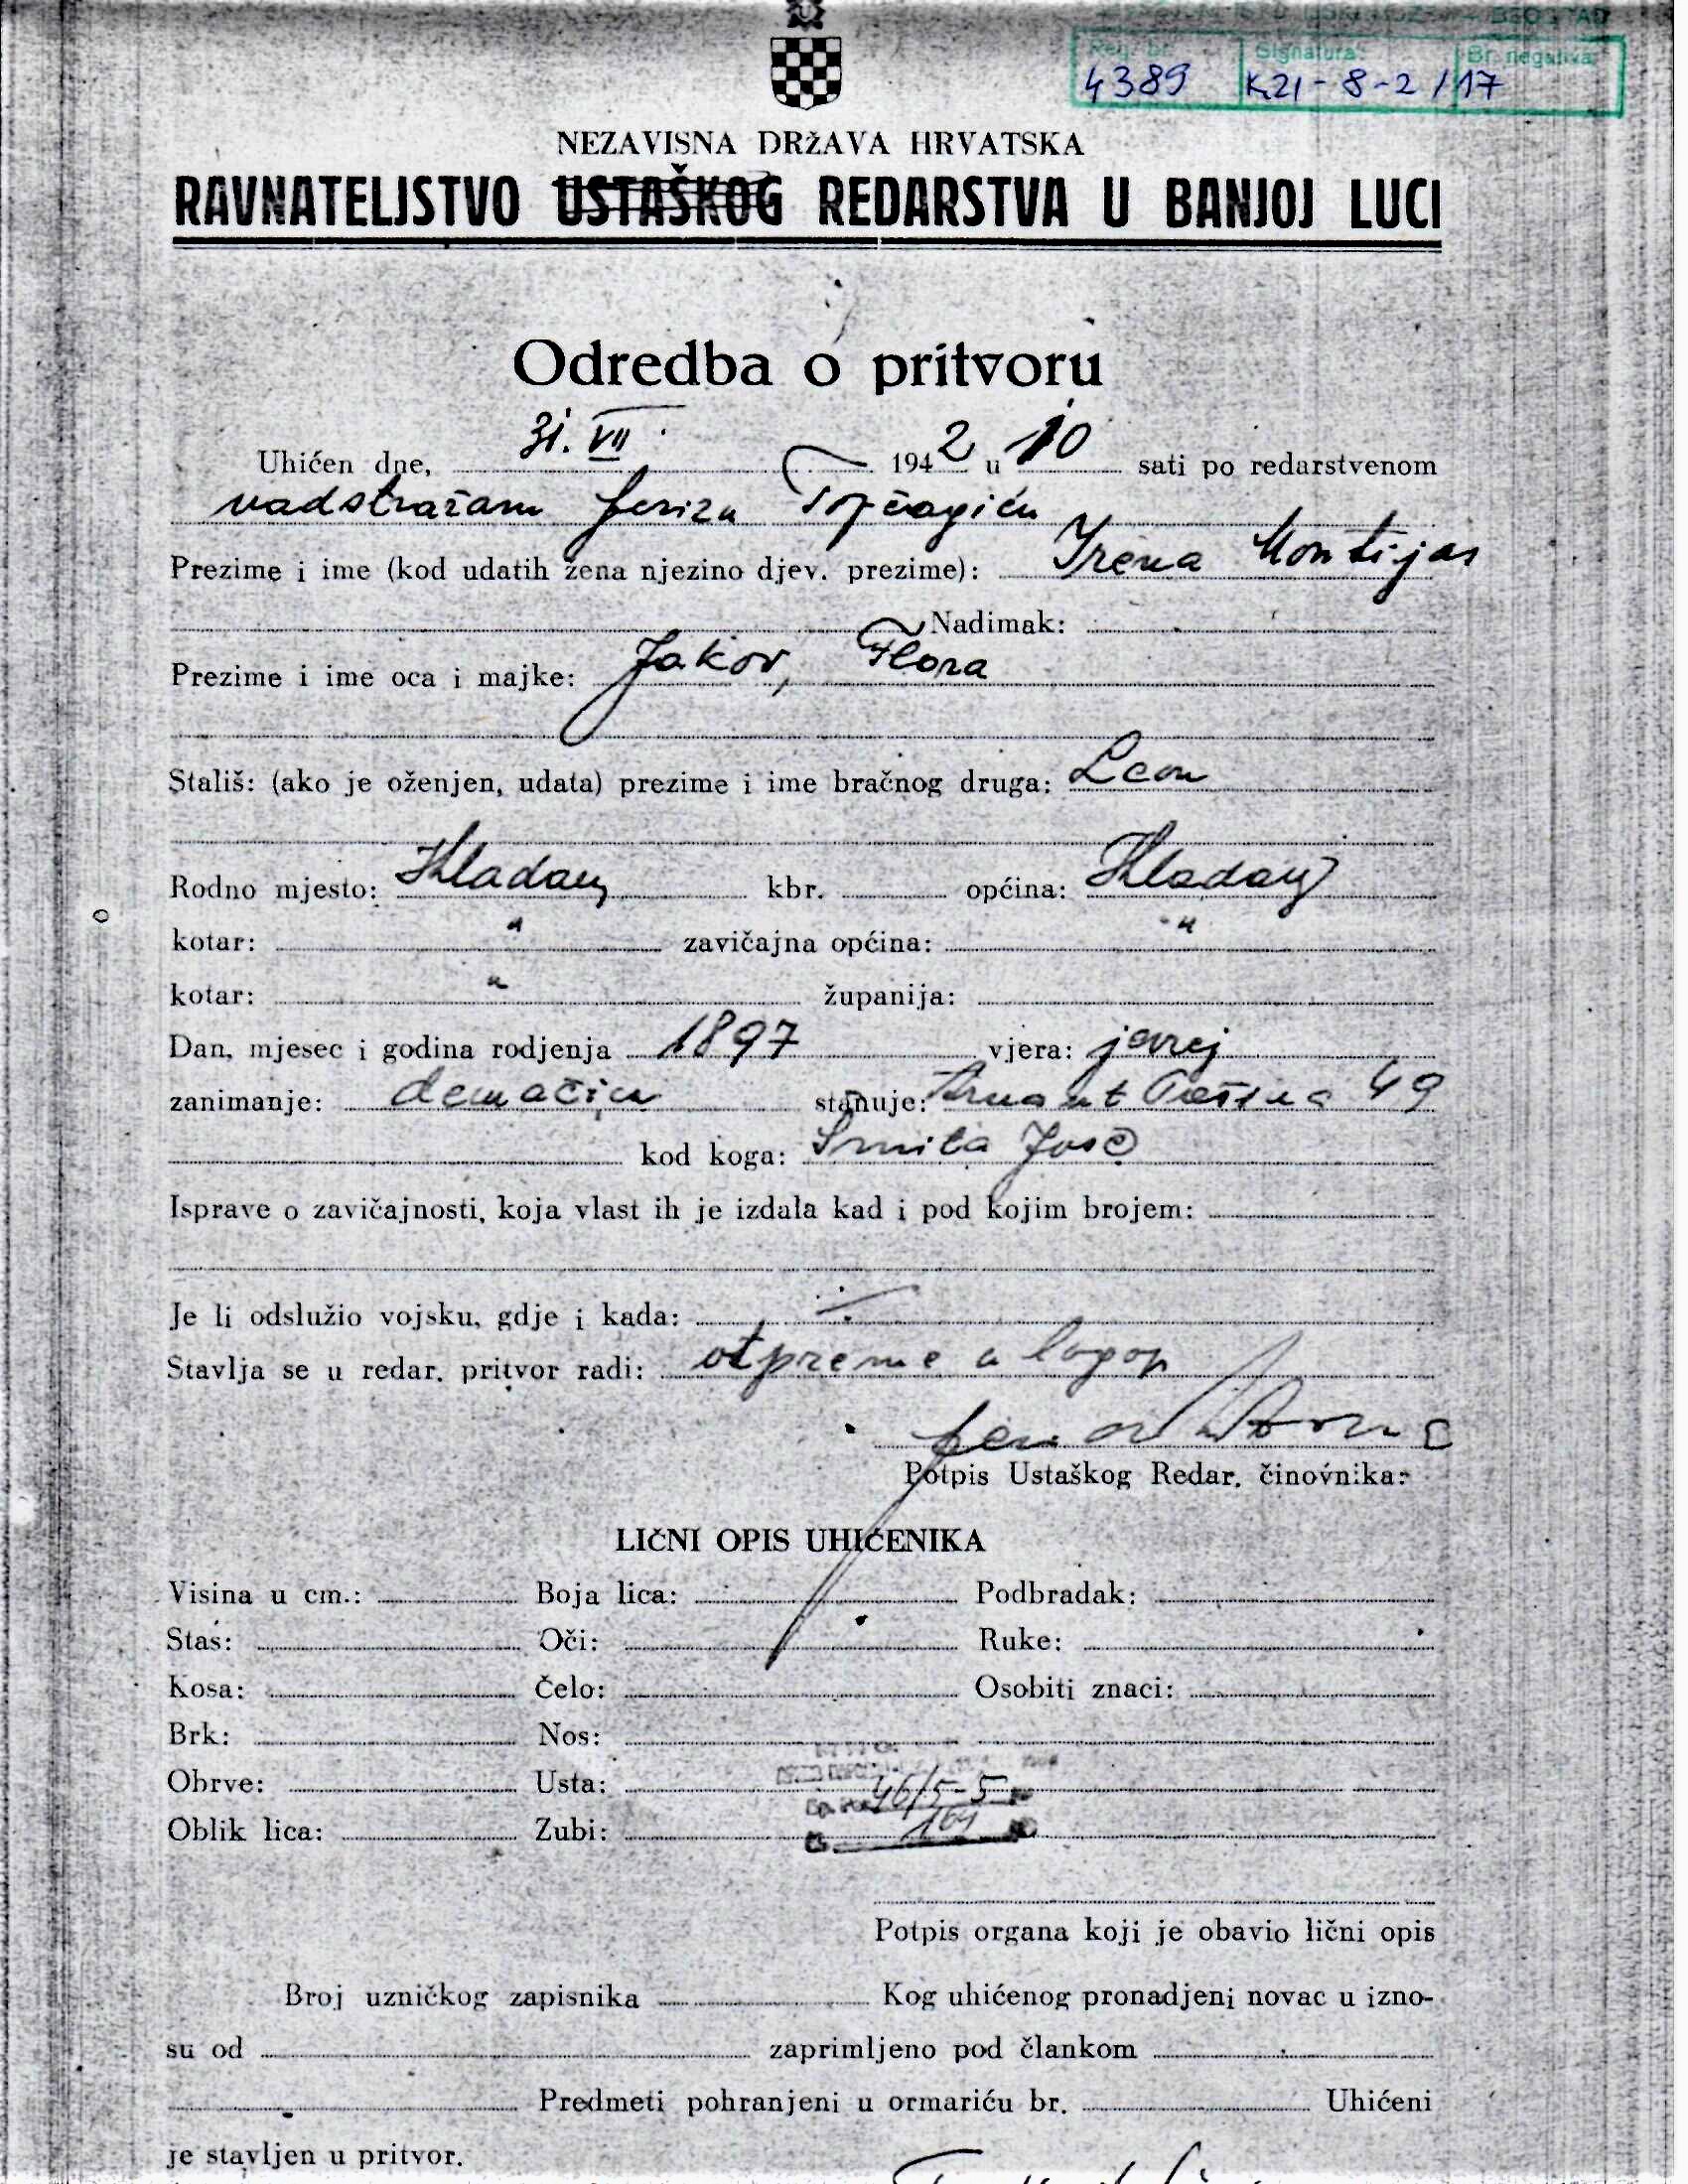 BEOGRAD
Reg. br. Signatura: Br. negativa:
4389 K21-8-2/17
NEZAVISNA DRŽAVA HRVATSKA
RAVNATELJSTVO USTAŠKOG REDARSTVA U BANJOJ LUCI
Odredba o pritvoru
Uhićen dne, 31. VII 1942 u 10 sati po redarstvenom
nadstražaru
Prezime i ime (kod udatih žena njezino djev. prezime): Irena Montijas
Nadimak:
Prezime i ime oca i majke: Jakov, Flora
Stališ: (ako je oženjen, udata) prezime i ime bračnog druga: Leon
Rodno mjesto: Kladanj kbr. općina: Kladanj
kotar: " zavičajna općina: "
kotar: " županija:
Dan, mjesec i godina rodjenja 1897 vjera: jevrej
zanimanje: domaćica stanuje: 49
kod koga: Jose
Isprave o zavičajnosti, koja vlast ih je izdala kad i pod kojim brojem:
Je li odslužio vojsku, gdje i kada:
Stavlja se u redar. pritvor radi: otpreme u logor
Potpis Ustaškog Redar. činovnika:
LIČNI OPIS UHIĆENIKA
Visina u cm.: Boja lica: Podbradak:
Stas: Oči: Ruke:
Kosa: Čelo: Osobiti znaci:
Brk: Nos:
Obrve: Usta: 46/5-5
Oblik lica: Zubi: 164
Potpis organa koji je obavio lični opis
Broj uzničkog zapisnika Kog uhićenog pronadjeni novac u izno-
su od zaprimljeno pod člankom
Predmeti pohranjeni u ormariću br. Uhićeni
je stavljen u pritvor.